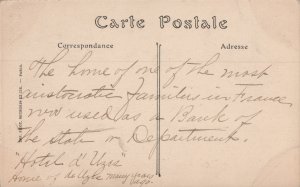 Carte Postale
Correspondance
Adresse
The home of one of the most
aristocratic families in France
now used as a Bank of
the state or Department.
"Hotel d'Uzes"
Home of de Uzes many years
ago.
PARIS.